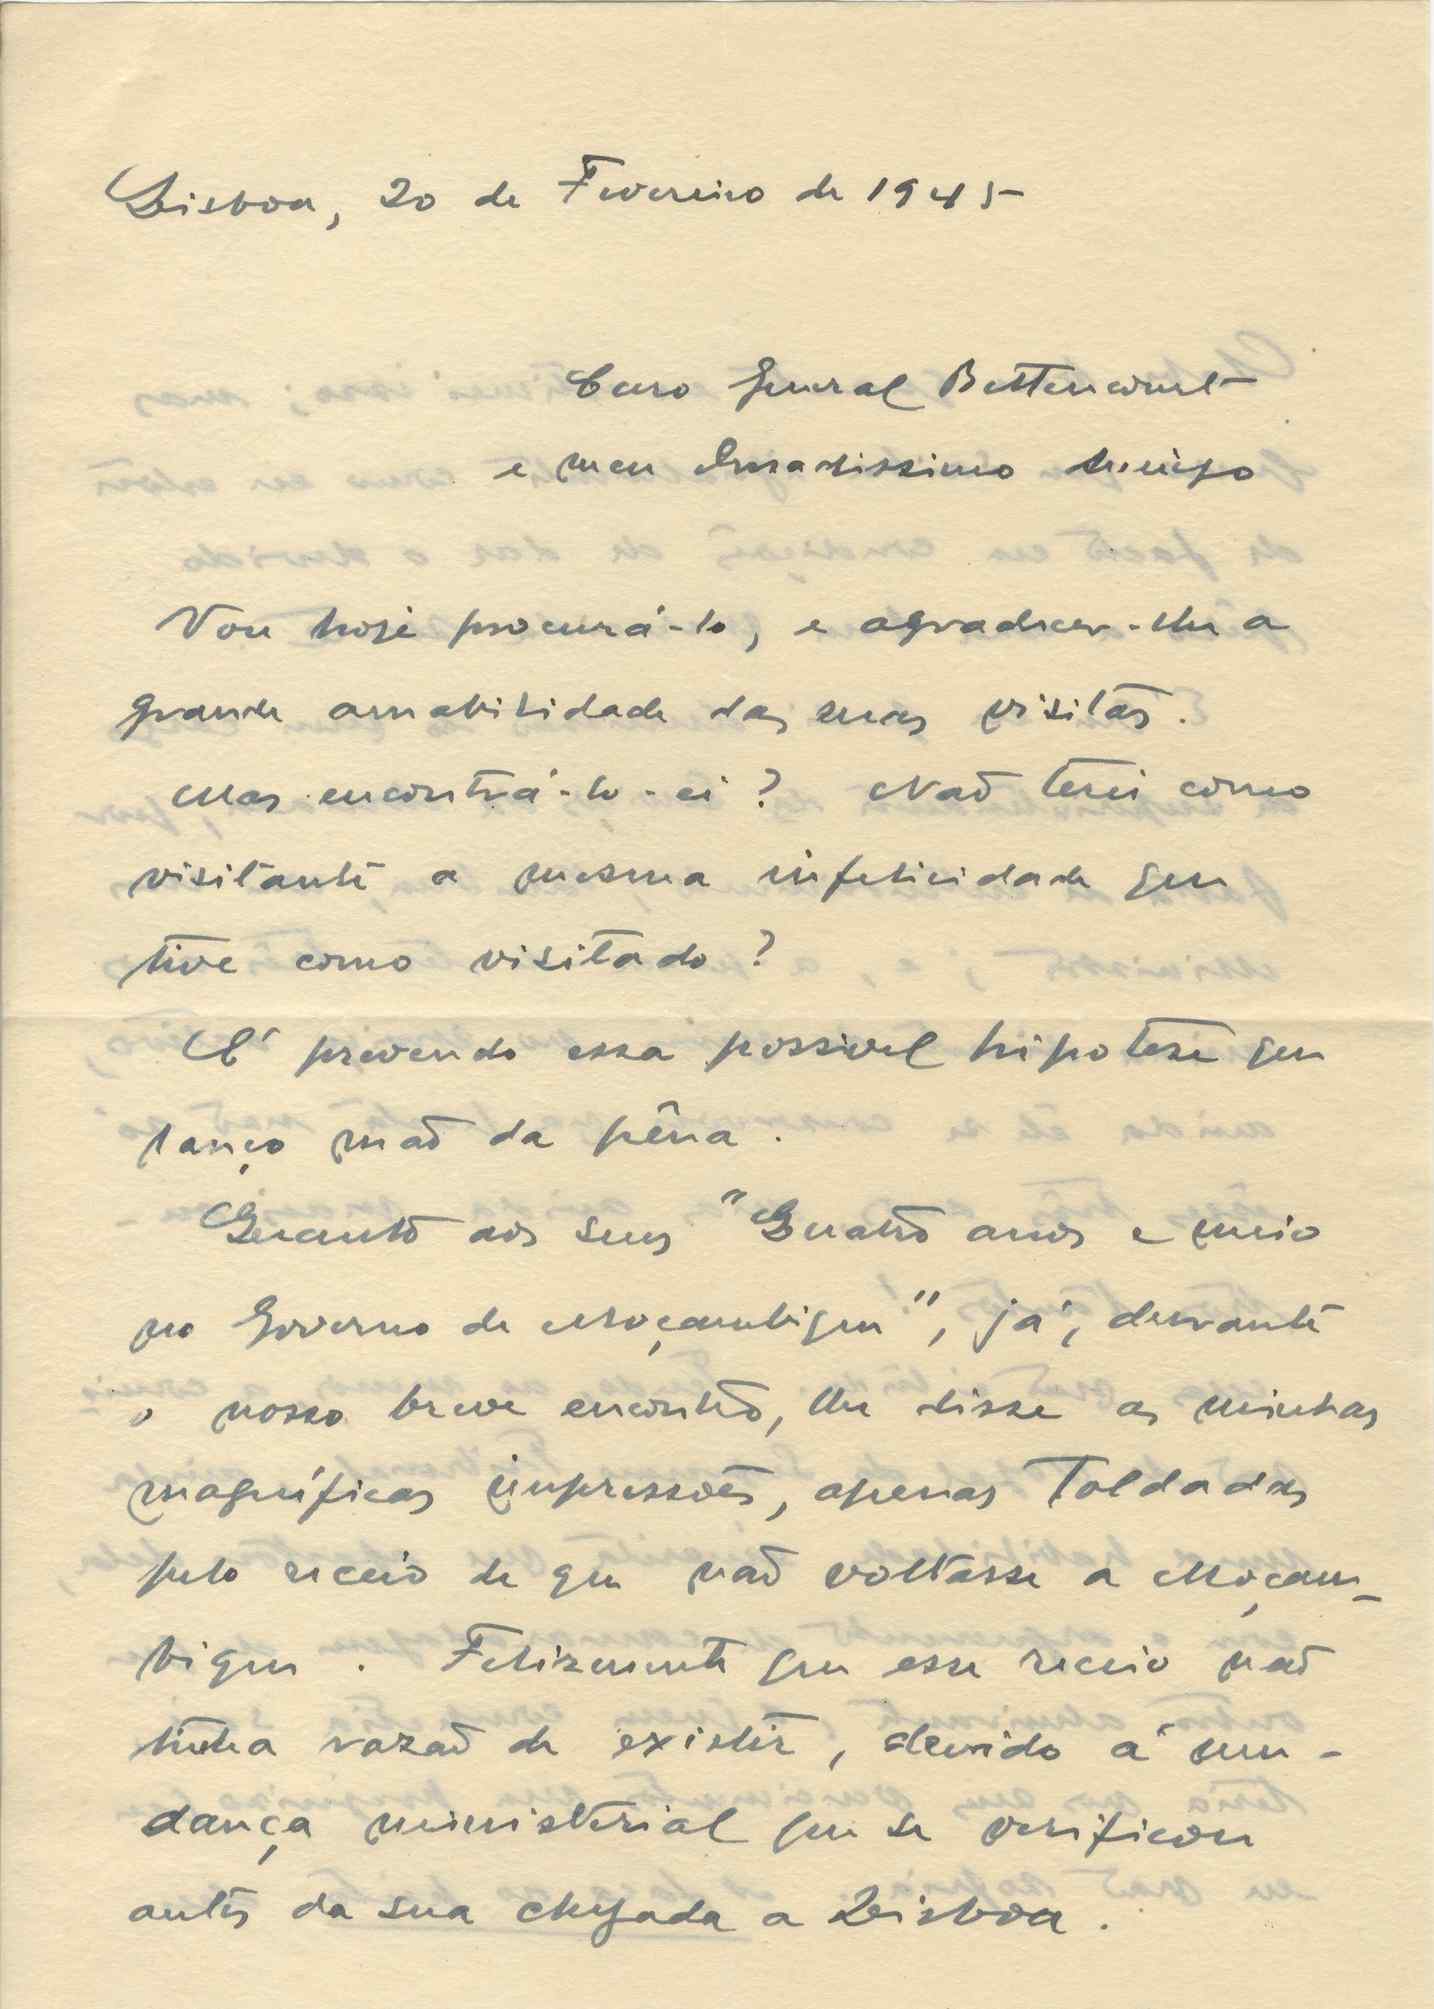 Lisboa, 20 de Fevereiro de 1945
Caro General Bettencourt
e meu Presadissimo Amigo
Vou hoje procurá-lo, e agradecer-lhe a
grande amabilidade das suas visitas.
Mas encontrá-lo-ei? Não terei como
visitante a mesma infelicidade que
tive como visitado?
É prevendo essa possivel hipotese que
lanço mão da pêna.
Quanto aos seus "Quatro anos e meio
no Governo de Moçambique", já, durante
o nosso breve encontro, lhe disse as minhas
magníficas impressões, apenas toldadas
pelo receio de que não voltasse a Moçam-
bique. Felizmente que esse receio não
tinha razão de existir, devido á mu-
dança ministerial que se verificou
antes da sua chegada a Lisboa.